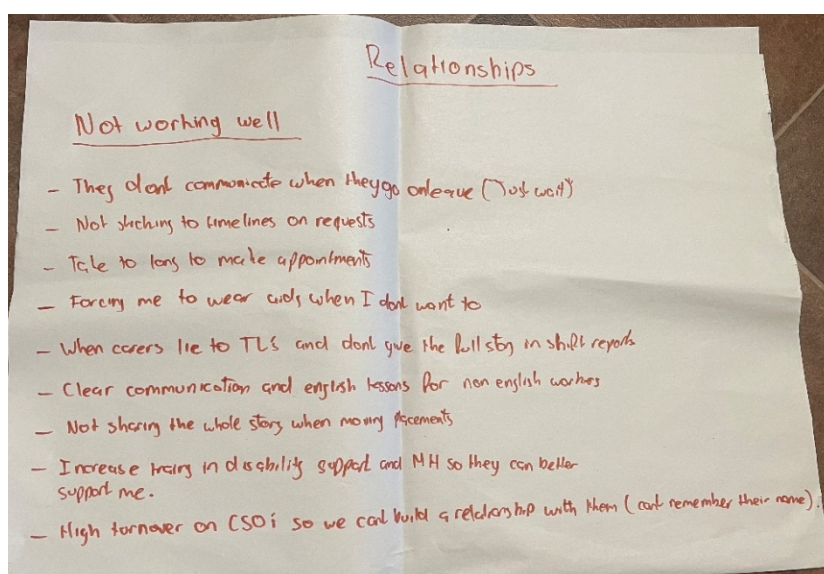 Relationships
Not working well
- They dont communicate when they go onleave (Just wait)
- Not sticking to timelines on requests
- Take to long to make appointments
- Forcing me to wear aids when I dont want to
- When carers lie to TLs and dont give the full story in shift reports
- Clear communication and english lessons for non english workers
- Not sharing the whole story when moving placements
- Increase traing in disability support and MH so they can better
support me.
- High turnover on CSOs so we cant build a relationship with them (cant remember their name).